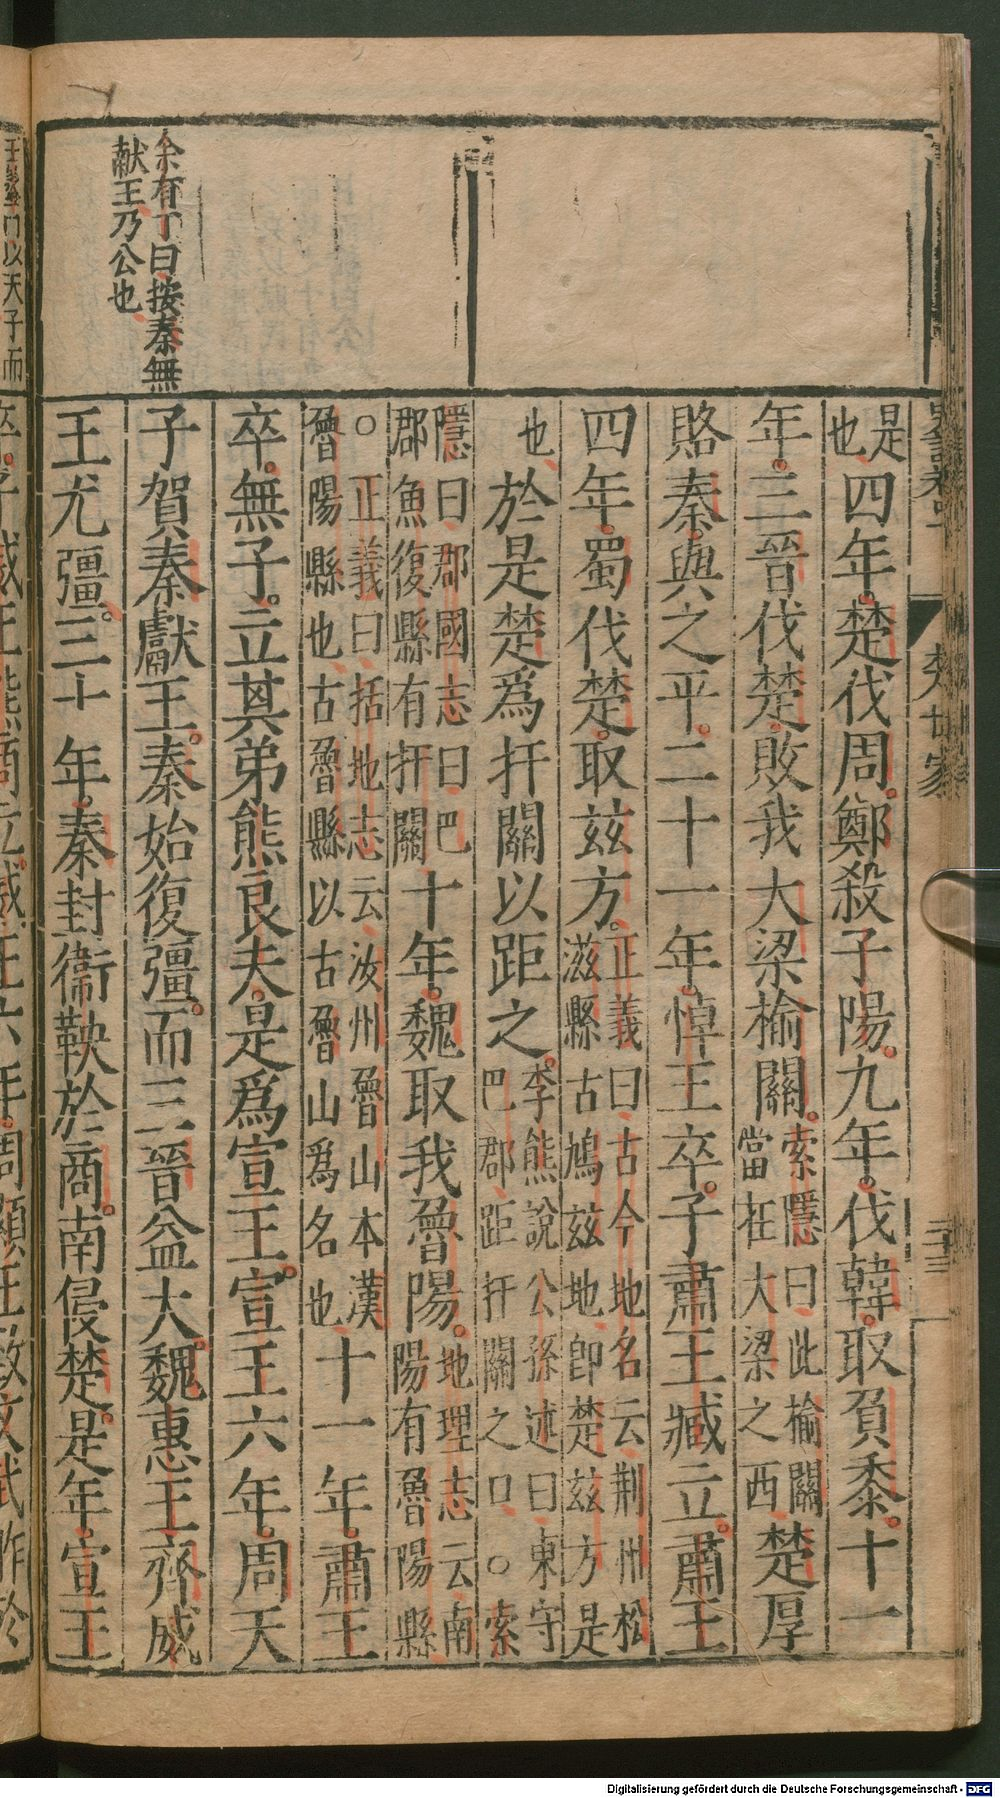 是也四年楚伐周鄭殺子陽九年伐韓取負黍十一
年三晉伐楚敗我大梁榆關索隱曰此榆關當在大梁之西楚厚
賂秦與之平二十一年悼王卒子肅王臧立肅王
四年蜀伐楚取兹方正義曰古今地名云荆州松滋縣古鳩兹地即楚兹方是
也於是楚爲扞關以距之李熊說公孫述曰東守巴郡距扞關之口○索
隱曰郡國志曰巴郡魚復縣有扞關十年魏取我魯陽地理志云南陽有魯陽縣
○正義曰括地志云汝州魯山本漢魯陽縣也古魯縣以古魯山爲名也十一年肅王
卒無子立其弟熊良夫是爲宣王宣王六年周天
子賀秦獻王秦始復彊而三晉益大魏惠王齊威
王尤彊三十年秦封衞鞅於商南侵楚是年宣王
余有丁曰按秦無
献王乃公也
楚世家
二十三
Digitalisierung gefördert durch die Deutsche Forschungsgemeinschaft - DFG